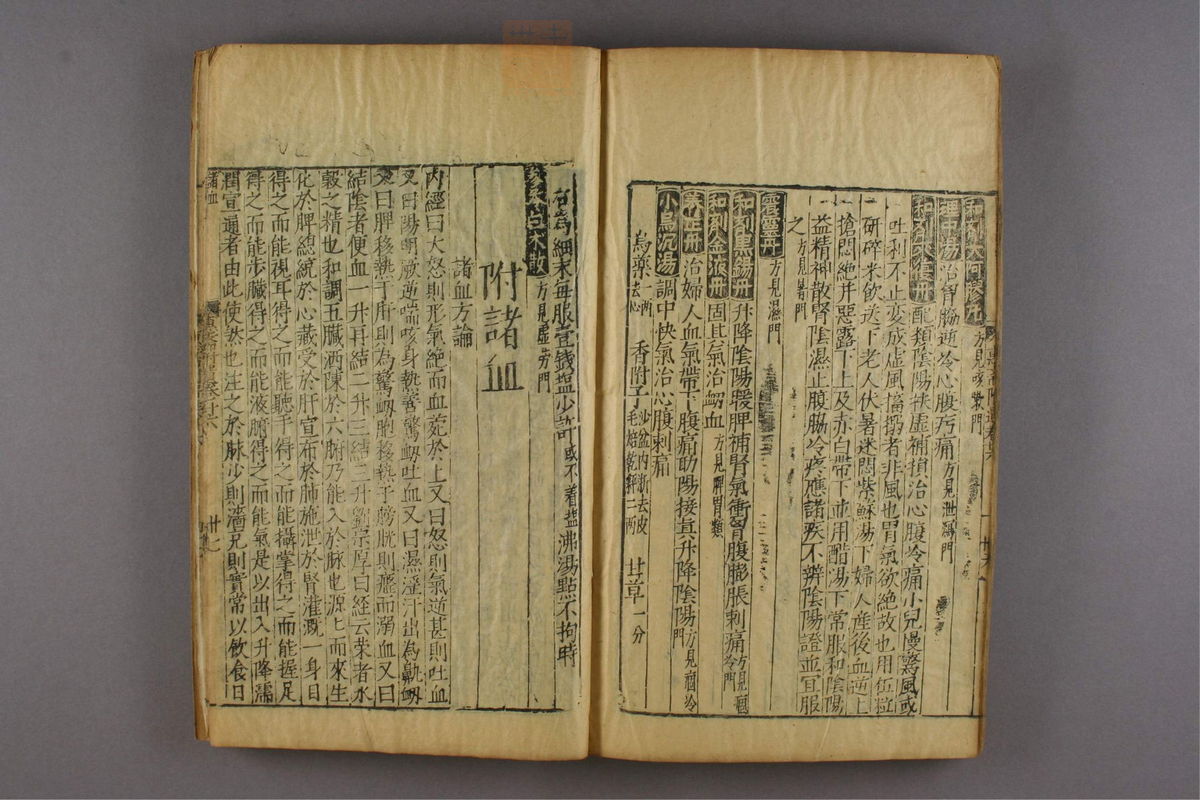 和劑
方見咳嗽門
理中湯治胃腸逆冷心腹疞痛方見泄瀉門
和劑來復丹配類陰陽扶虛補損治心腹冷痛小兒慢驚風或
吐利不止變成虛風搐搦者非風也胃氣欲絶故也用伍粒
研碎米飲送下老人伏暑迷悶紫蘇湯下婦人産後血逆上
搶悶絶并惡露不止及赤白帶下並用醋湯下常服和陰陽
益精神散腎陰濕止腹脇冷疼應諸疾不辨陰陽證並宜服
之方見暑門
靈丹方見濕門
和劑黒錫丹升降陰陽暖脾補腎氣衝胷腹膨脹刺痛方見冷門
和劑金液丹固真氣治衂血方見脾胃類
養正丹治婦人血氣帶下腹痛助陽接真升降陰陽方見痼冷門
小烏沉湯調中快氣治心腹刺痛
烏藥一兩去心 香附子沙盆内斷去皮毛焙乾秤二兩 甘草一分
右為細末每服壹錢塩少許或不着塩沸湯點不拘時
白朮散方見虛勞門
附諸血
諸血方論
内經曰大怒則形氣絶而血菀於上又曰怒則氣逆甚則吐血
又曰陽明厥逆喘咳身熱善驚衂吐血又曰濕淫汗出為鼽衂
又曰脾移熱于肝則為驚衂胞移熱于膀胱則癃而溺血又曰
結陰者便血一升再結二升三結三升劉宗厚曰経云荣者水
穀之精也和調五臟洒陳於六腑乃能入於脉也源上而來生
化於脾總統於心藏受於肝宣布於肺施泄於腎灌溉一身目
得之而能視耳得之而能聽手得之而能攝掌得之而能握足
得之而能步臟得之而能液腑得之而能氣是以出入升降濡
潤宣通者由此使然也注之於脉少則濇充則實常以飲食日
諸血
廿七